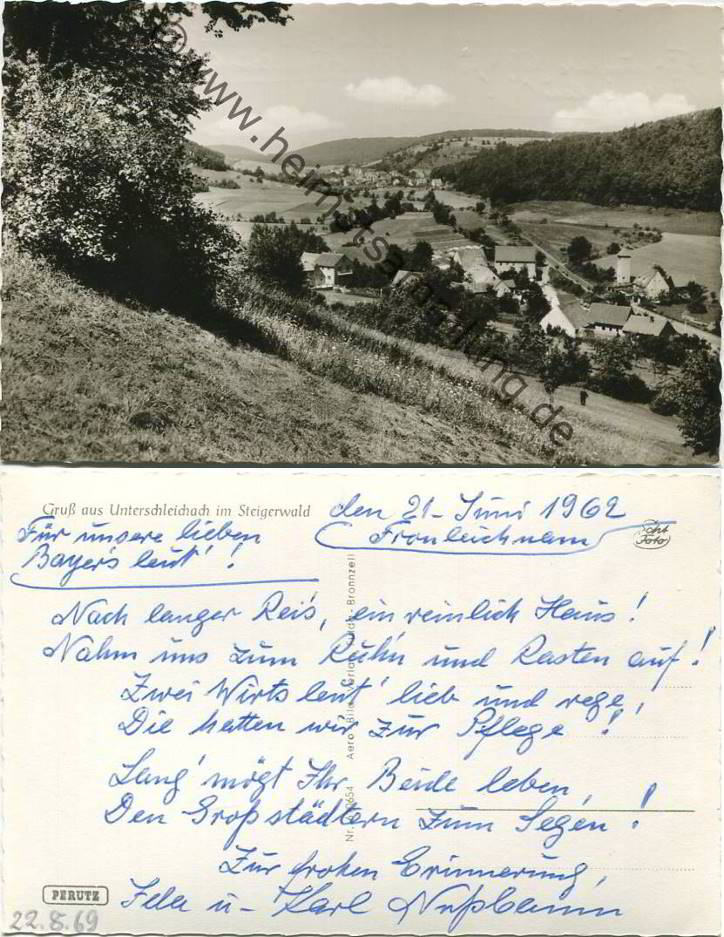 © www.heimatsammlung.de
Gruß aus Unterschleichach im Steigerwald
den 21. Juni 1962
Fronleichnam
Echt Foto
Für unsere lieben
Bayer's leut'!
Nach langer Reis', ein reinlich Haus!
Nahm uns zum Ruh'n und Rasten auf!
Zwei Wirtsleut' lieb und rege,
Die hatten wir zur Pflege!
Lang' mögt Ihr Beide leben,
Den Großstädtern zum Segen!
Zur frohen Erinnerung,
u. Karl Nußbaum
PERUTZ
22.8.69